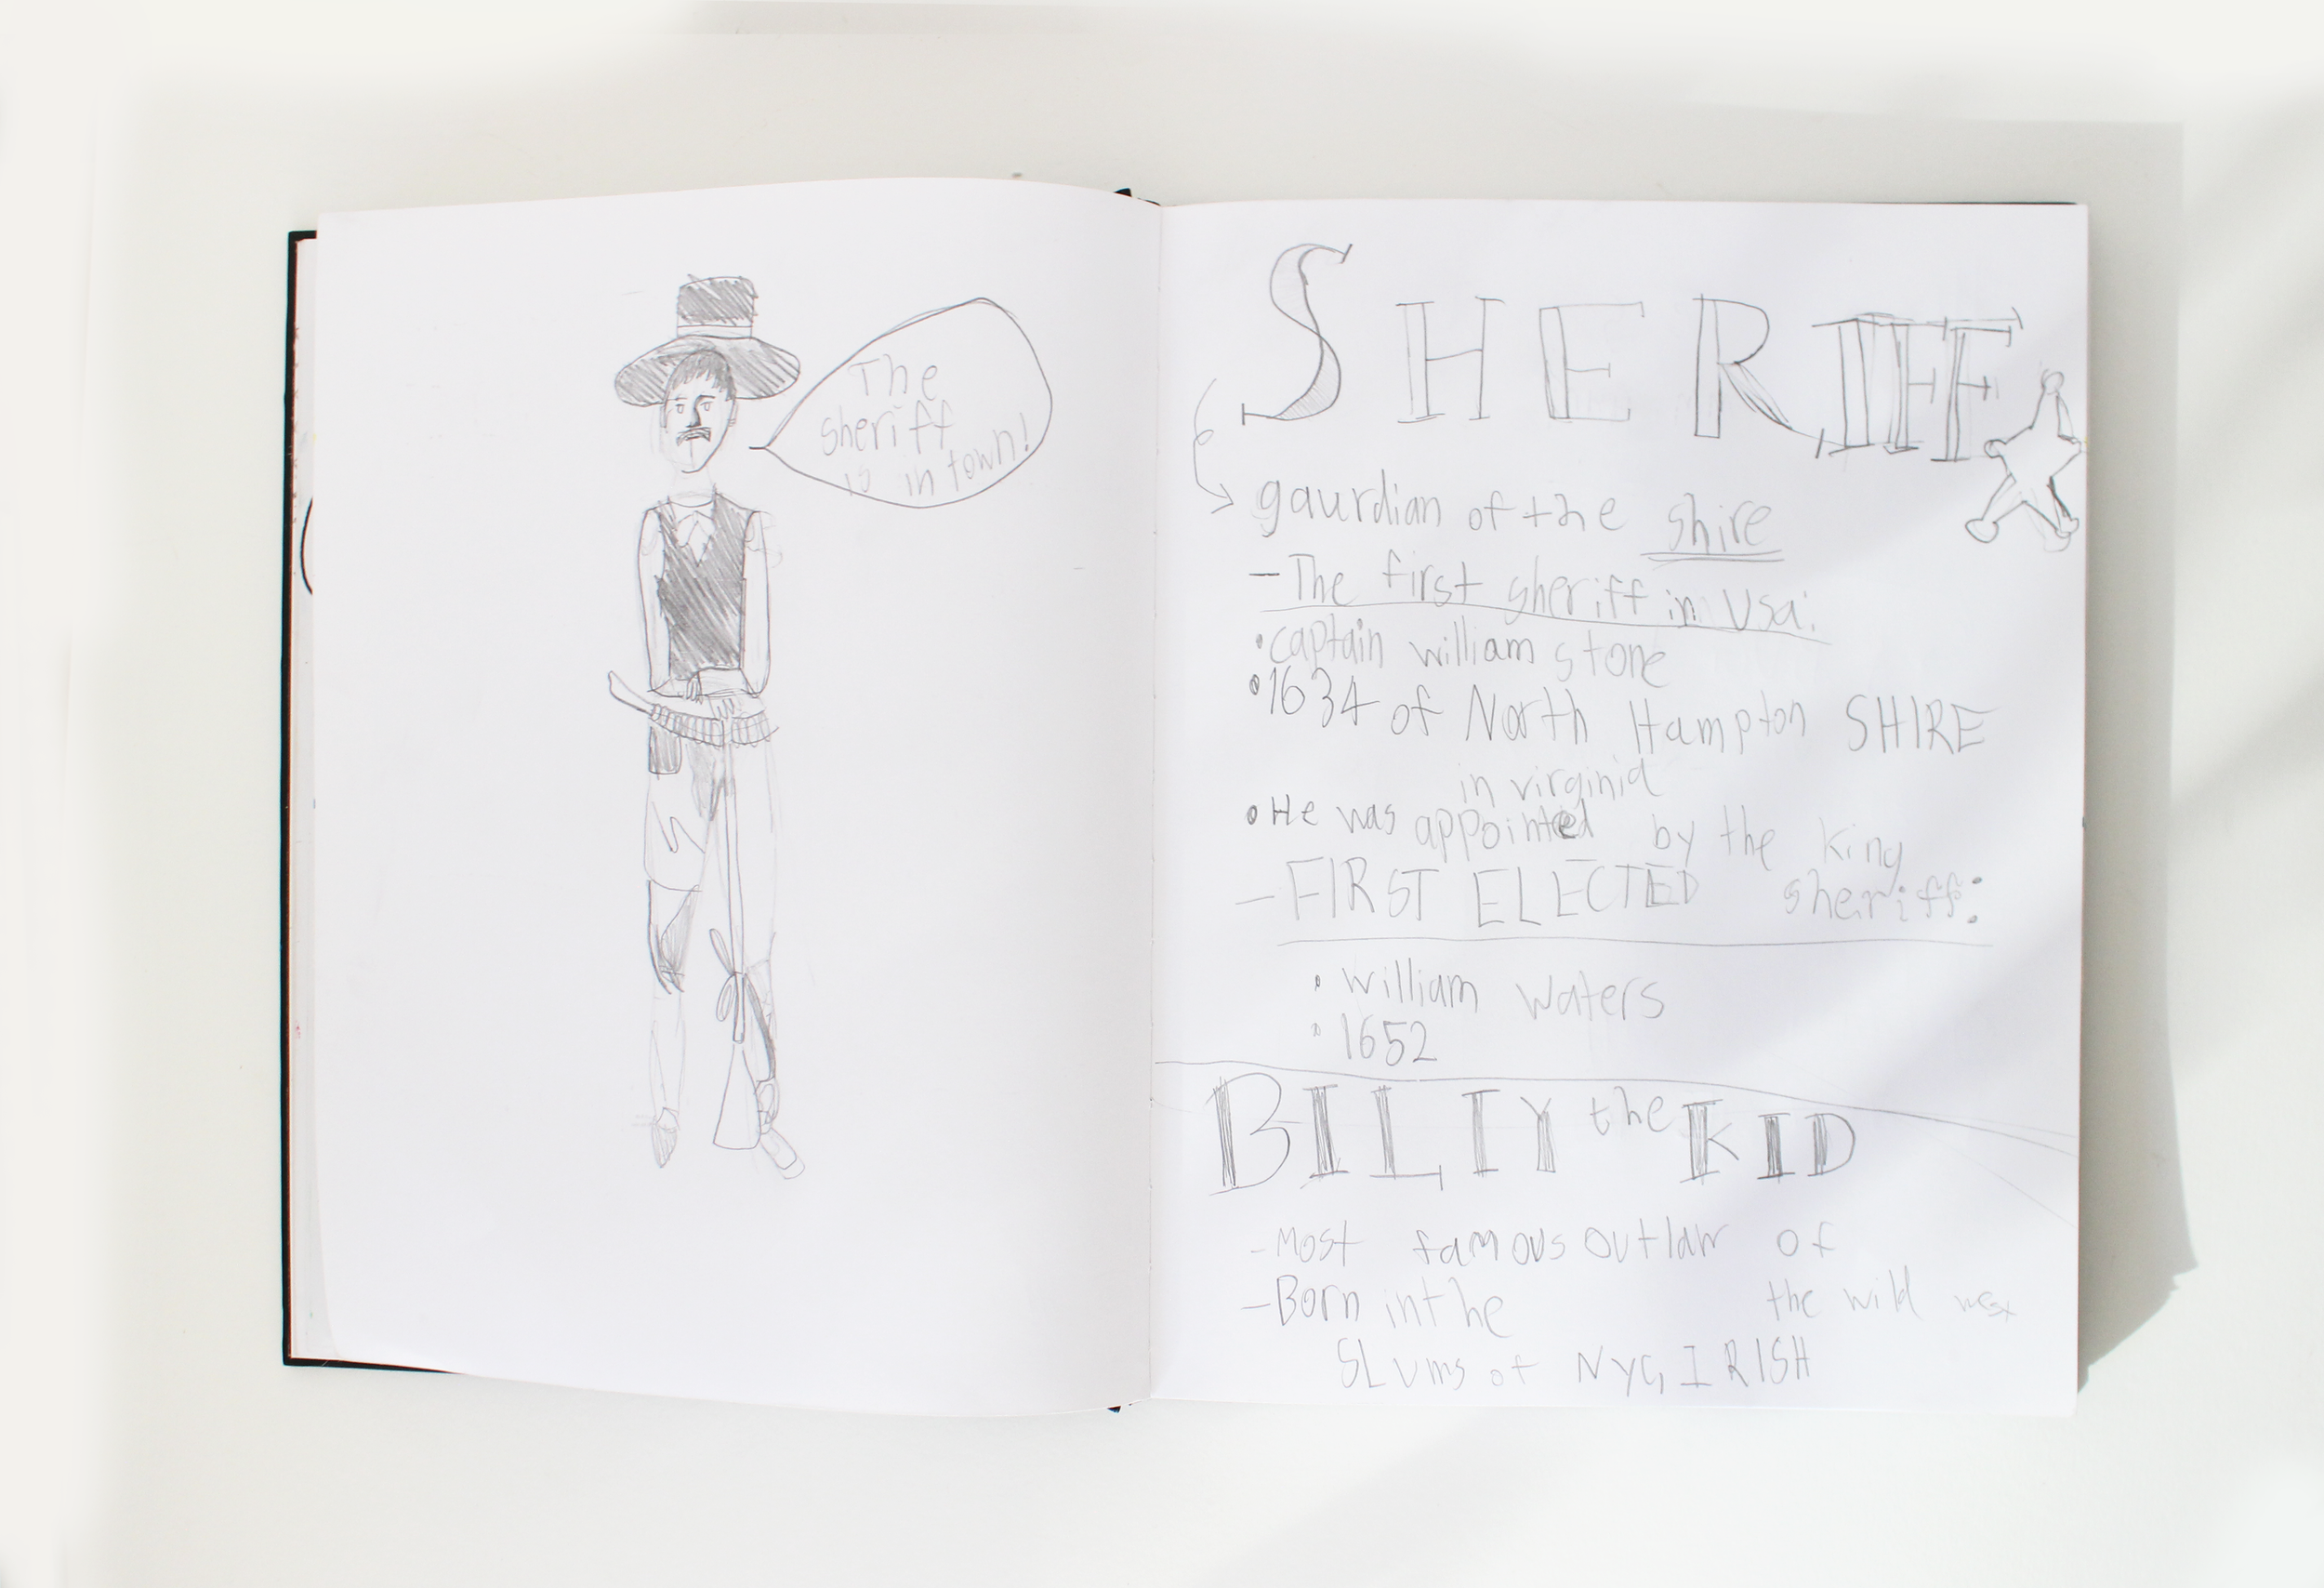 The
sheriff
is in town!
SHERIFF
gaurdian of the shire
- The first sheriff in Usa:
• captain william stone
• 1634 of North Hampton SHIRE
in virginia
• He was appointed by the King
- FIRST ELECTED sheriff:
• william waters
• 1652
BILLY the KID
- Most famous outlaw of
the wild west
- Born in the
SLums of NYC, IRISH